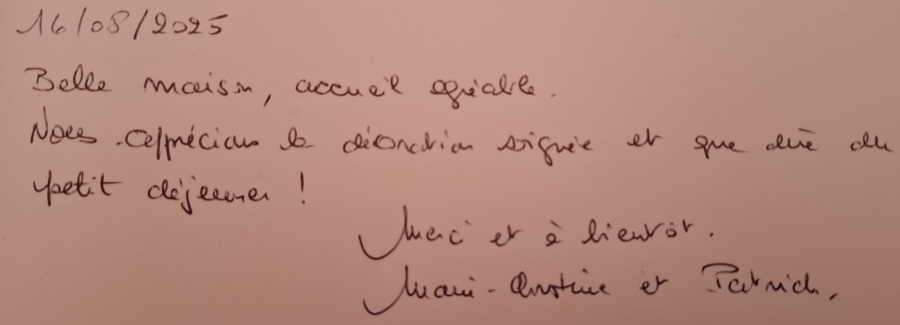 16/08/2025
Belle maison, accueil agréable.
Nous apprécions la décoration soignée et que dire du
petit déjeuner !
Merci et à bientôt.
Marie-Christine et Patrick.